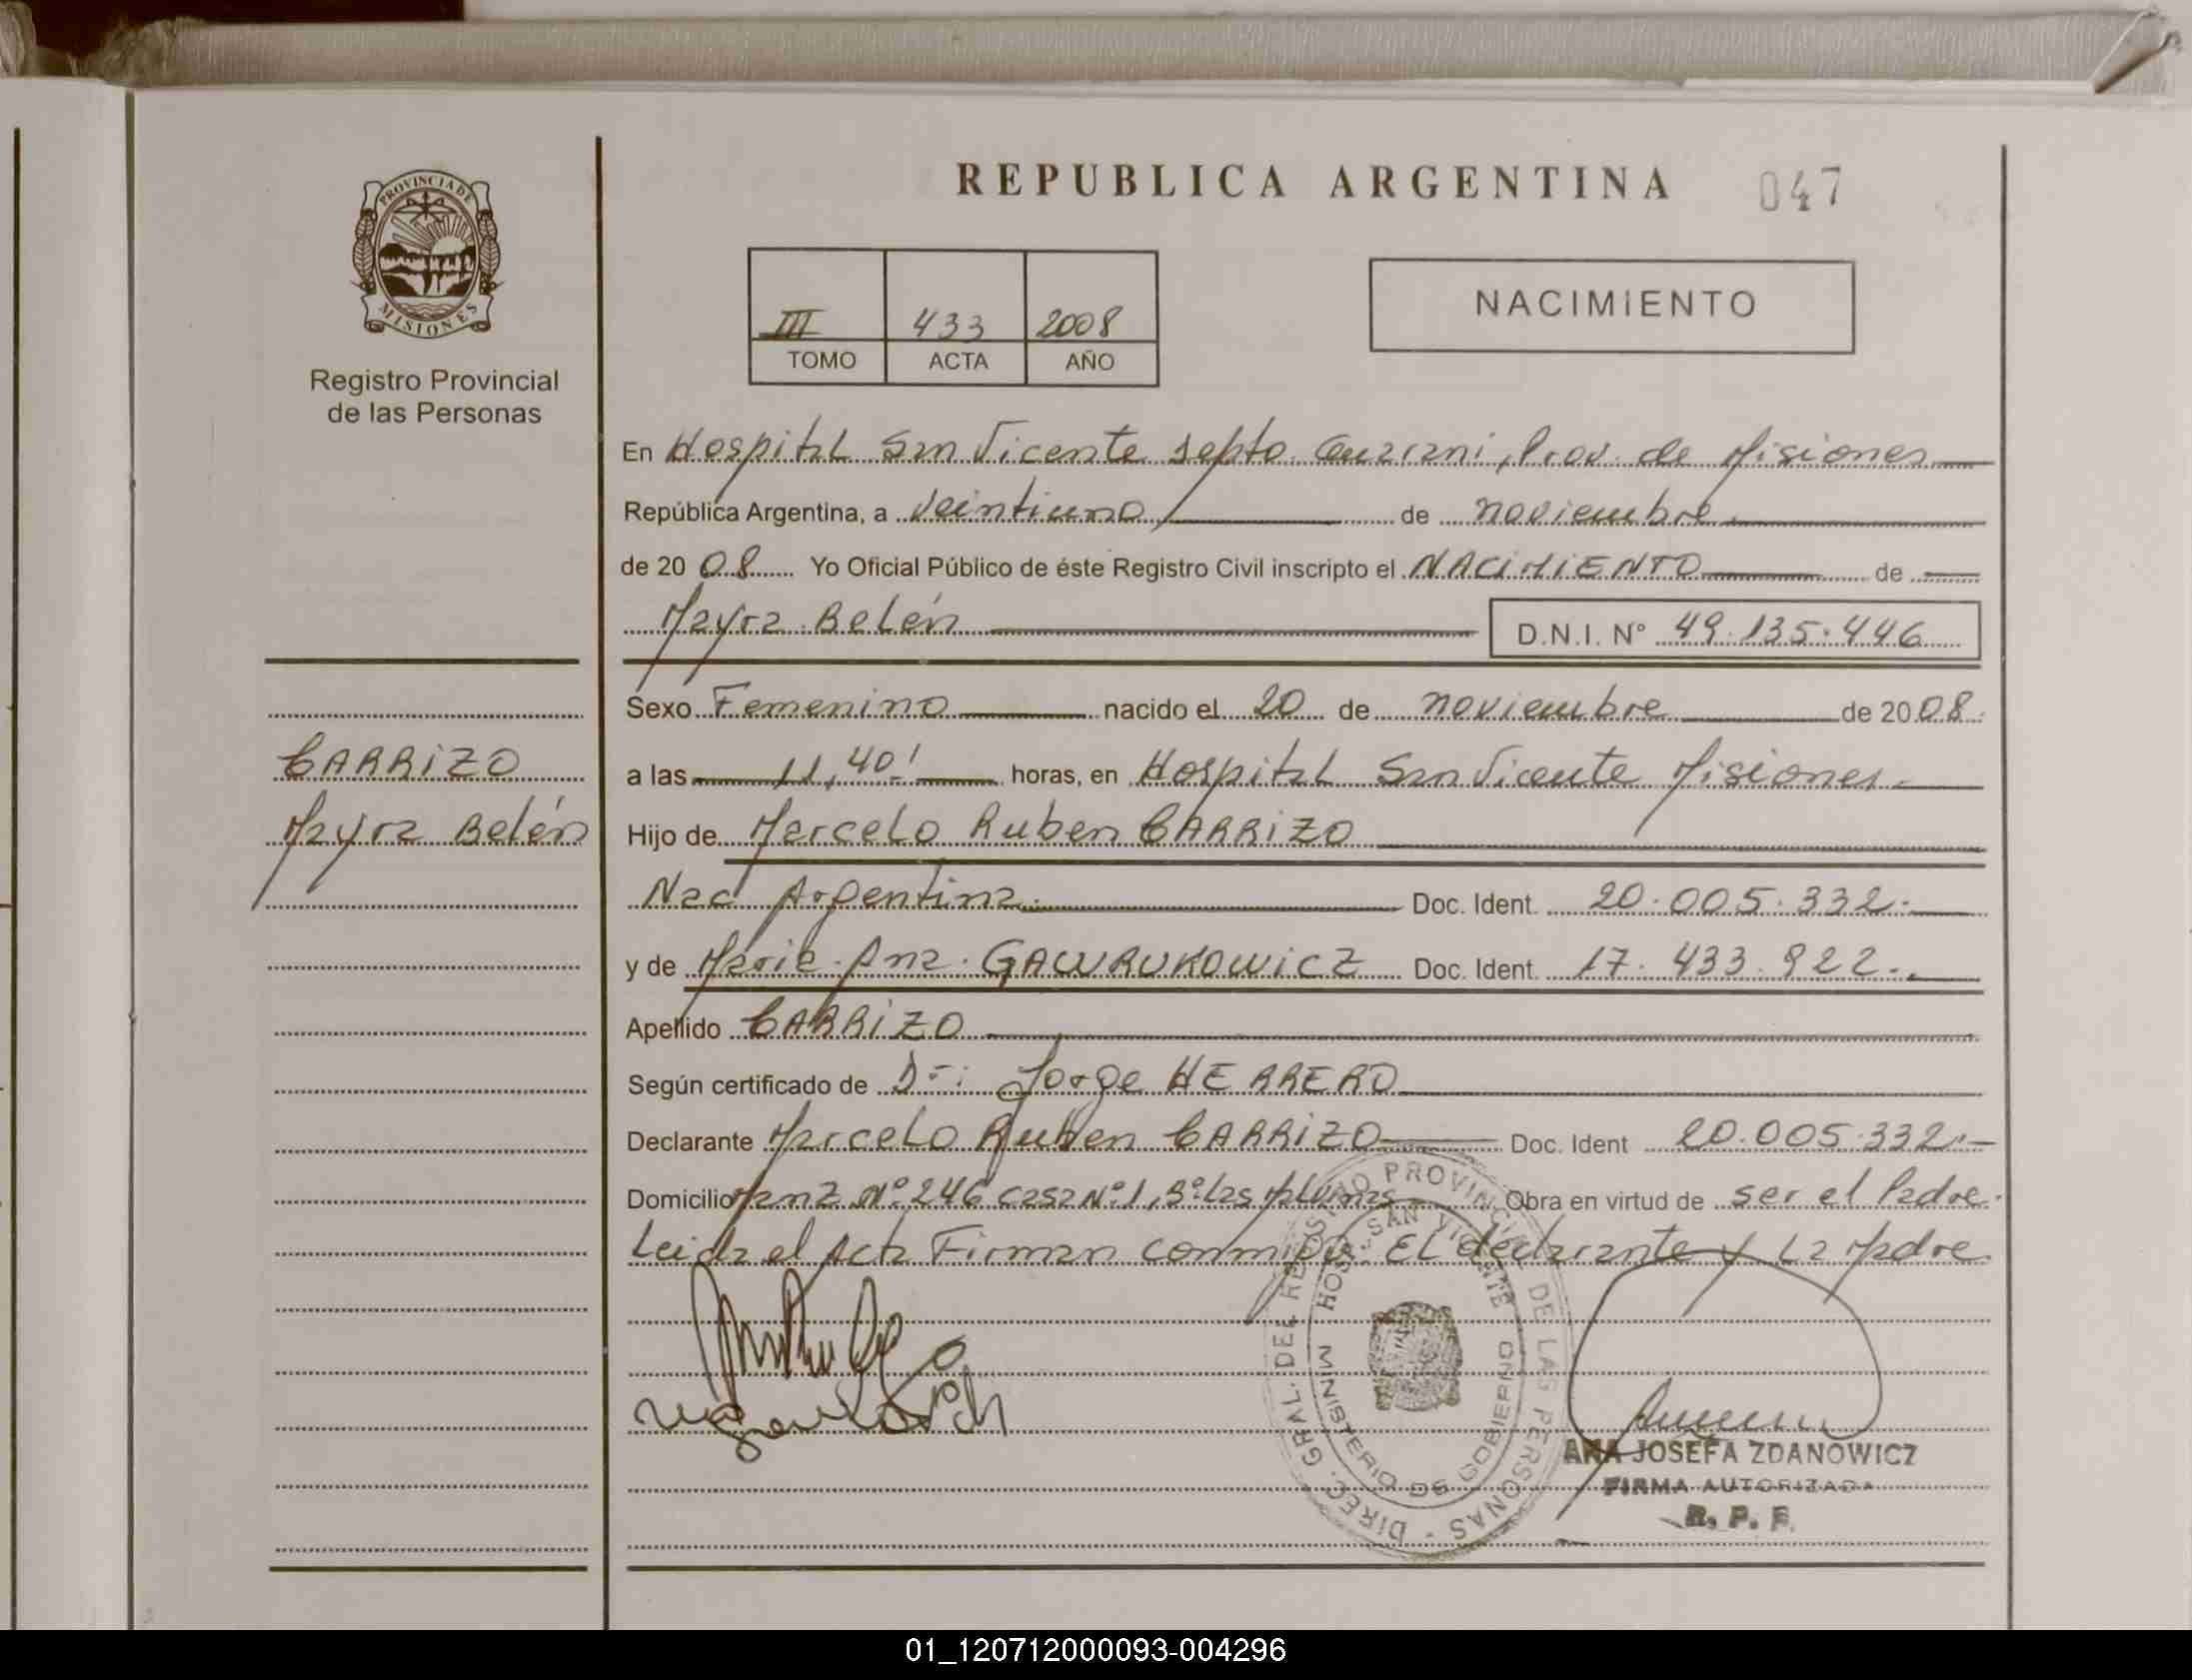 REPUBLICA ARGENTINA 047
PROVINCIA DE
MISIONES
Registro Provincial
de las Personas
III 433 2008
TOMO ACTA AÑO
NACIMIENTO
En Hospital San Vicente Depto. Guarani, Prov. de Misiones
República Argentina, a veintiuno de noviembre
de 20 08 Yo Oficial Público de éste Registro Civil inscripto el NACIMIENTO de
Mayra Belén D.N.I. Nº 49.135.446
Sexo Femenino nacido el 20 de noviembre de 20 08
CARRIZO
Mayra Belén
a las 11,40' horas, en Hospital San Vicente Misiones
Hijo de Marcelo Ruben CARRIZO
Nac Argentina Doc. Ident. 20.005.332.
y de Maria Ana GAWRUKOWICZ Doc. Ident. 17.433.922.
Apellido CARRIZO
Según certificado de Dr: Jorge HERRERO
Declarante Marcelo Ruben CARRIZO Doc. Ident 20.005.332.
Domicilio Manz Nº 246 casa Nº 1, Bº Las Malvinas Obra en virtud de ser el Padre.
Leida el Acta Firman conmigo El declarante y La Madre
DIREC. GRAL. DEL REGISTRO PROVINCIAL DE LAS PERSONAS
HOSP. SAN VICENTE
MINISTERIO DE GOBIERNO
ANA JOSEFA ZDANOWICZ
FIRMA AUTORIZADA
R. P. P.
01_120712000093-004296